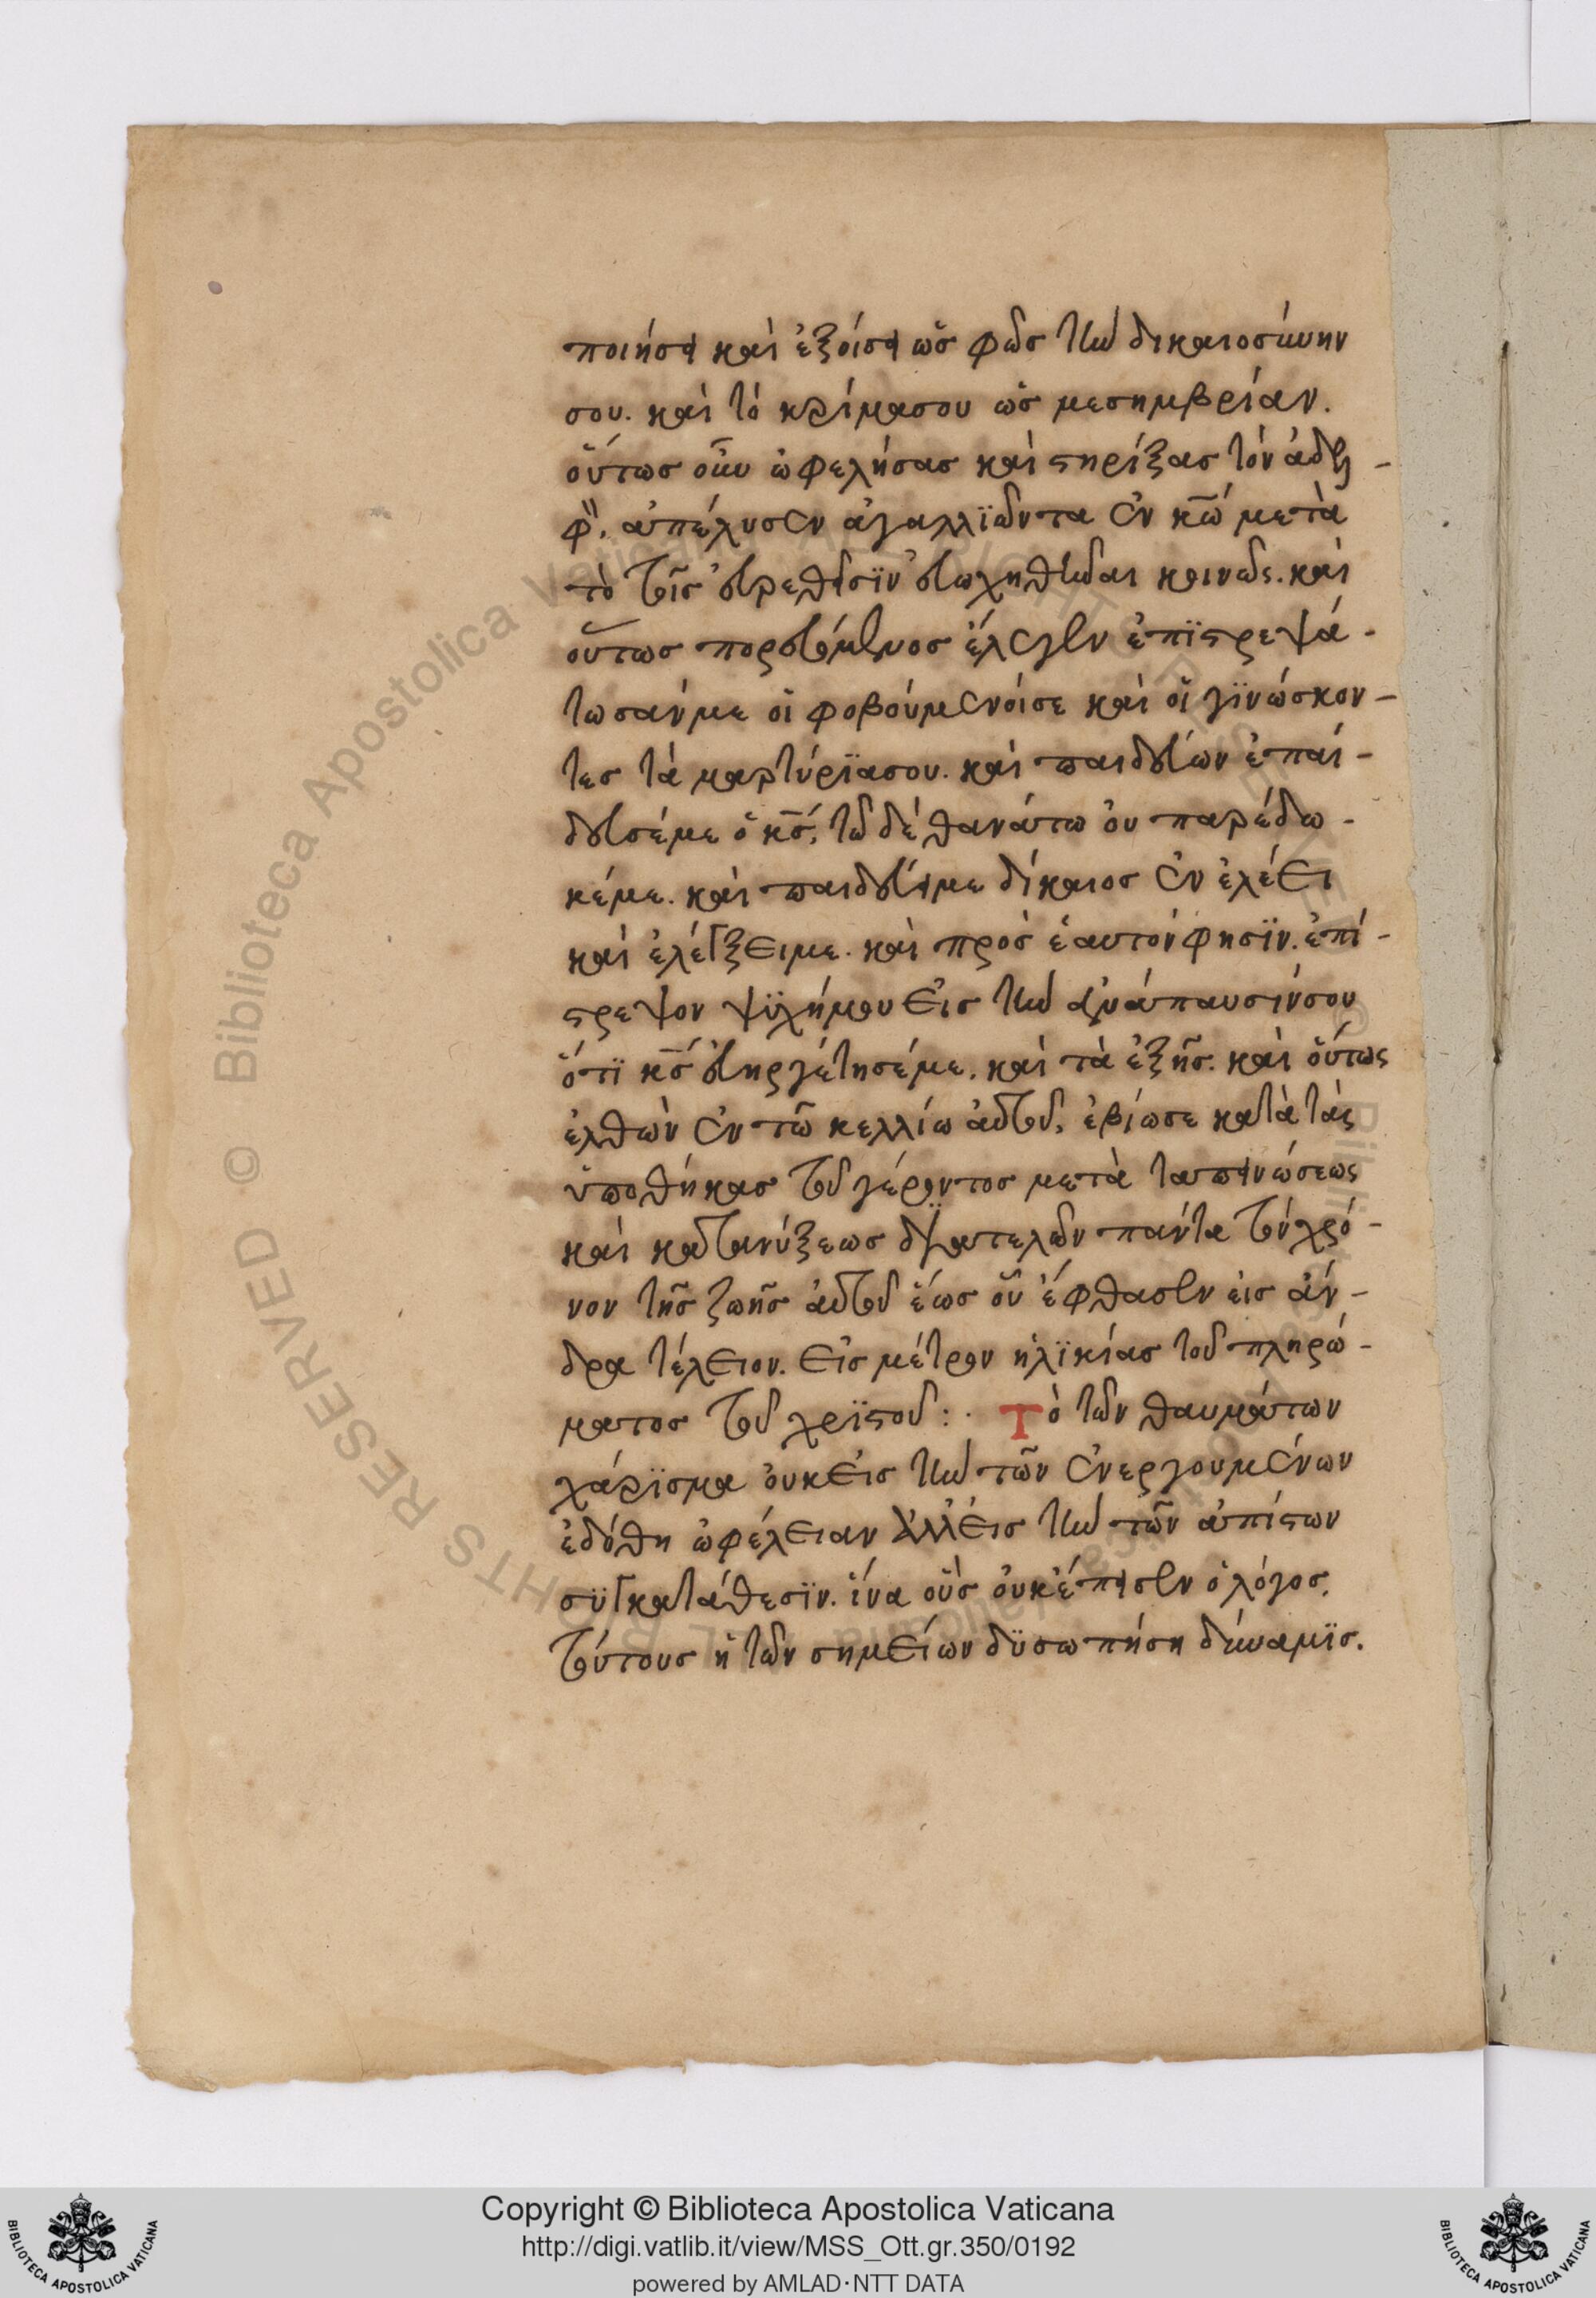 ποιήσει καὶ ἐξοίσει ὡς φῶς τὴν δικαιοσύνην
σου. καὶ τὸ κρίμασου ὡς μεσημβρίαν.
οὕτως οὖν ὠφελήσας καὶ στηρίξας τὸν ἀδελ-
φὸν. ἀπέλυσεν ἀγαλλϊῶντα ἐν κω μετὰ
τὸ τοῖς εὑρεθεῖσϊν εὐωχηθῆναι κοινῶς. καὶ
οὕτως πορευόμενος ἔλεγεν ἐπϊστρεψά-
τωσανμε οἱ φοβούμενοίσε καὶ οἱ γϊνώσκον-
τες τὰ μαρτύρϊασου. καὶ παιδεύων ἐπαί-
δευσέμε ὁ κς, τῶ δὲ θανάτω οὐ παρέδω-
κέμε. καὶ παιδεύσειμε δίκαιος ἐν ἐλέει
καὶ ἐλέγξειμε. καὶ πρὸς ἑαυτόν φησϊν. ἐπί-
στρεψον ψϋχήμου εἰς τὴν ἀνάπαυσίνσου
ὅτϊ κς εὐηργέτησέμε. καὶ τὰ ἑξῆς. καὶ οὕτως
ἐλθὼν ἐν τῶ κελλίω αὐτοῦ, ἐβίωσε κατὰ τὰς
ὑποθήκας τοῦ γέροντος μετὰ ταπεινώσεως
καὶ κατανύξεως δϊατελῶν πάντα τὸν χρό-
νον τῆς ζωῆς αὐτοῦ ἕως οὗ ἔφθασεν εἰς ἄν-
δρα τέλειον. εἰς μέτρον ἡλϊκίας τοῦ πληρώ-
ματος τοῦ χρϊστοῦ :· Τὸ τῶν θαυμάτων
χάρϊσμα οὐκεἰς τὴν τῶν ἐνεργουμένων
ἐδόθη ὠφέλειαν ἀλλεἰς τὴν τῶν ἀπίστων
σϋγκατάθεσϊν. ἵνα οὓς οὐκἔπεισεν ὁ λόγος,
τούτους ἡ τῶν σημείων δϋσωπήση δύναμϊς.
Copyright © Biblioteca Apostolica Vaticana
http://digi.vatlib.it/view/MSS_Ott.gr.350/0192
powered by AMLAD·NTT DATA